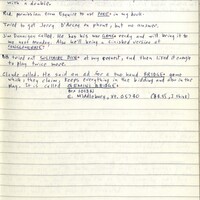 with a double.
Rcd. permission from Esquire to use POKE in my book.
Tried to get Jerry D'Arcey on phone, but no answer.
Jim Dunnigan called. He has his war games ready and will bring it to
me next Monday. Also he'll bring a finished version of
BB tried out SOLITAIRE DICE at my request, and then liked it enough
to play twice more.
Claude called. He said an ad for a two hand BRIDGE game
which, they claim, keeps everything in the bidding and also in the
play. It is called GEMINI BRIDGE
Box
E. Middlebury, Vt. 05740 ($8.95, I think)